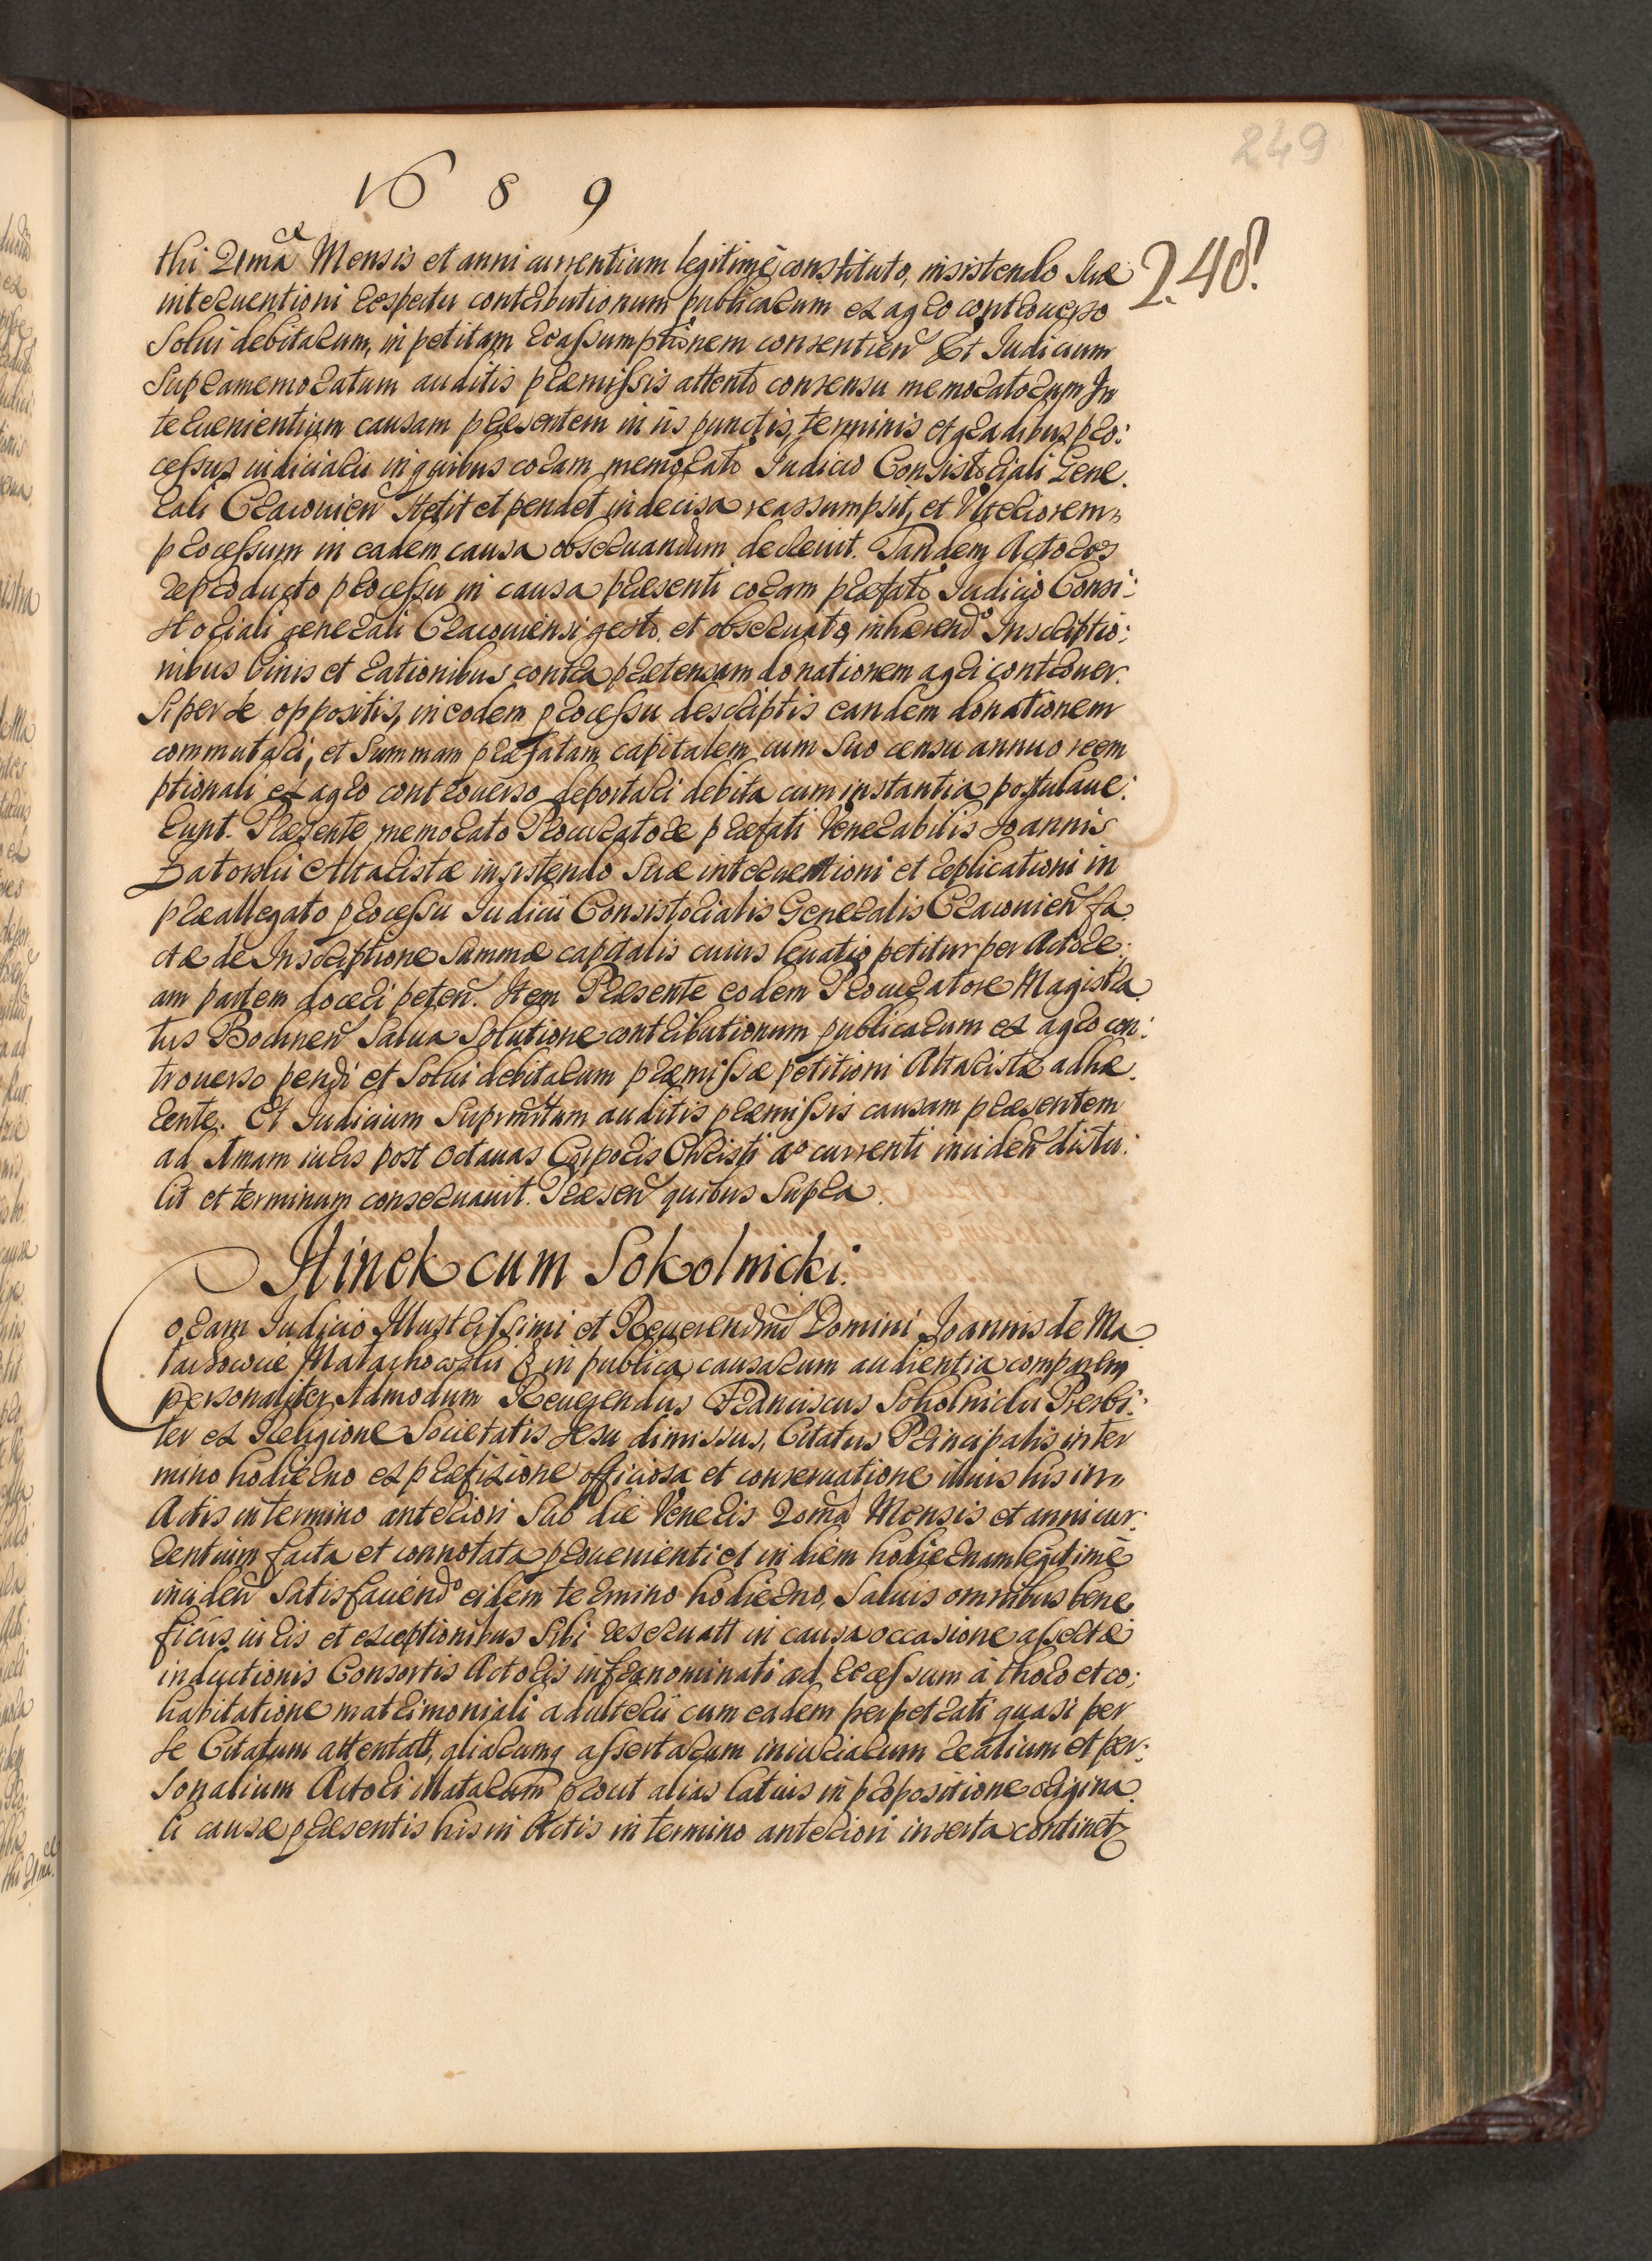 249
1689
248
thi 21mã Mensis et anni currentium legitimè constituto, insistendo Suæ
interuentioni respectu contributionum publicarum ex agro controuerso
Solui debitarum, in petitam reassumptionem consentien̄ Et Iudicium
Supramemoratum auditis præmissis attento consensu memoratorum In
teruenientium causam præsentem in iis punctis, terminis et gradibus pro:
cessus iudiciarii in quibus coram memorato Iudicio Consistoriali Gene.
rali Cracouien̄ stetit et pendet indecisa reassumpsit, et Vlteriorem
processum in eadem causa obseruandum decreuit. Tandem Actores
reproducto processu in causa præsenti coram præfato Iudicio Consi:
storiali generali Cracouiensi gesto, et obseruato, inhærendo Inscriptio:
nibus binis et rationibus contra prætensam donationem agri controuer.
si per se oppositis, in eodem processu descriptis eandem donationem
commutari, et Summam præfatam capitalem cum Suo censu annuo reem
ptionali ex agro controuerso deportari debita cum instantia postulaue:
runt. Præsente memorato Procuratore præfati Venerabilis Joannis
Zatorski Altaristæ insistendo Suæ interuentioni et replicationi in
præallegato processu Iudicii Consistorialis Generalis Cracouien̄ fa
ctæ de Inscriptione Summæ capitalis cuius leuatio petitur per Actore:
am partem doceri peten̄. Item Præsente eodem Procuratore Magistra
tus Bochnen̄ Salua Solutione contributionum publicarum ex agro con:
trouerso pendi et Solui debitarum præmissæ petitioni Altaristæ adhæ.
rente. Et Iudicium Suprmtum auditis præmissis causam præsentem
ad Amam iuris post Octauas Corporis Christi ao currenti inciden̄ distu:
lit et terminum conseruauit. Præsen̄ quibus Supra.
Hinek cum Sokolnicki.
Coram Iudicio Illustrissimi et Reuerendmi Domini Joannis de Ma
łachowice Małachowski & in publica causarum audientia comparens
personaliter Admodum Reuerendus Franciscus Sokolnicki Presbi:
ter ex Religione Societatis Jesu dimissus, Citatus Principalis in ter
mino hodierno ex præfixione officiosa et conseruatione illius his in
Actis in termino anteriori Sub die Veneris 20ma Mensis et anni cur:
rentium facta et connotata prouenienti et in diem hodiernam legitimè
inciden̄ Satisfaciendo eidem termino hodierno, Saluis omnibus bene
ficiis iuris et exceptionibus Sibi reseruatt in causa occasione assertæ
inductionis Consortis Actoris infranominati ad recessum à thoro et co:
habitatione matrimoniali adulterii cum eadem perpetrati quasi per
se Citatum attentatt, aliarumq assertarum iniuriarum realium et per:
sonalium Actori illatarum prout alias latius in propositione origina
li causæ præsentis his in Actis in termino anteriori inserta continetr